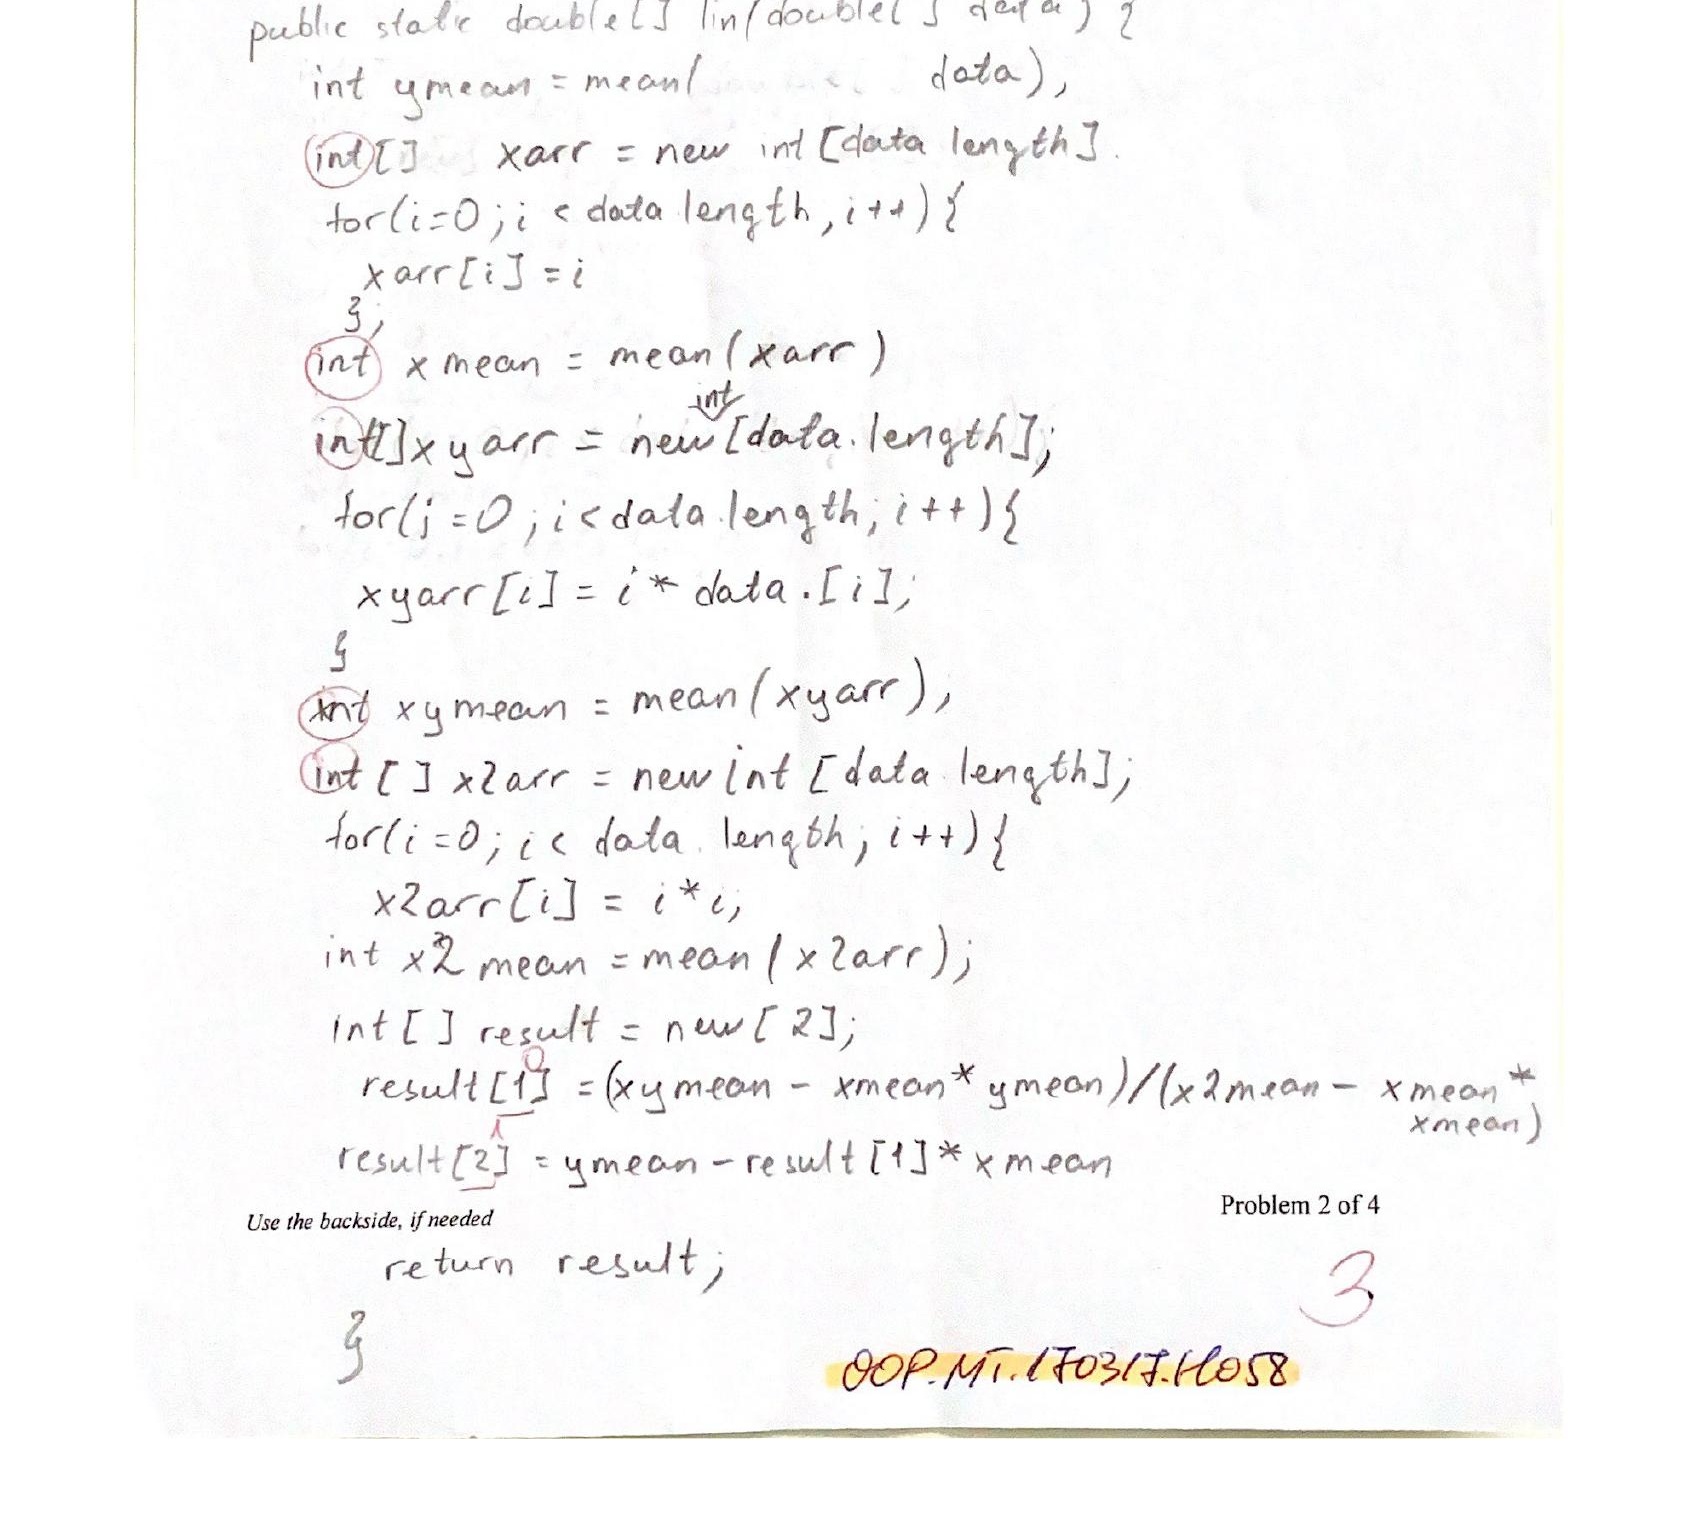 public static double[] lin(double[] data) {
int ymean = mean( data),
int[] xarr = new int [data length].
for(i=0;i < data length, i++){
xarr[i] = i
};
int xmean = mean(xarr)
int
int[]xyarr = new [data.length];
for(j=0;i<data.length; i++){
xyarr[i] = i* data.[i];
}
int xymean = mean(xyarr),
int [] x2arr = new int [data length];
for(i=0; i< data. length; i++){
x2arr[i] = i*i;
int x2mean = mean(x2arr);
int[] result = new[2];
0
result[1] = (xymean - xmean* ymean)/(x2mean - xmean*
xmean)
1
result[2] = ymean - result[1]* xmean
Problem 2 of 4
Use the backside, if needed
return result;
3
}
OOP.MT.170317.H058